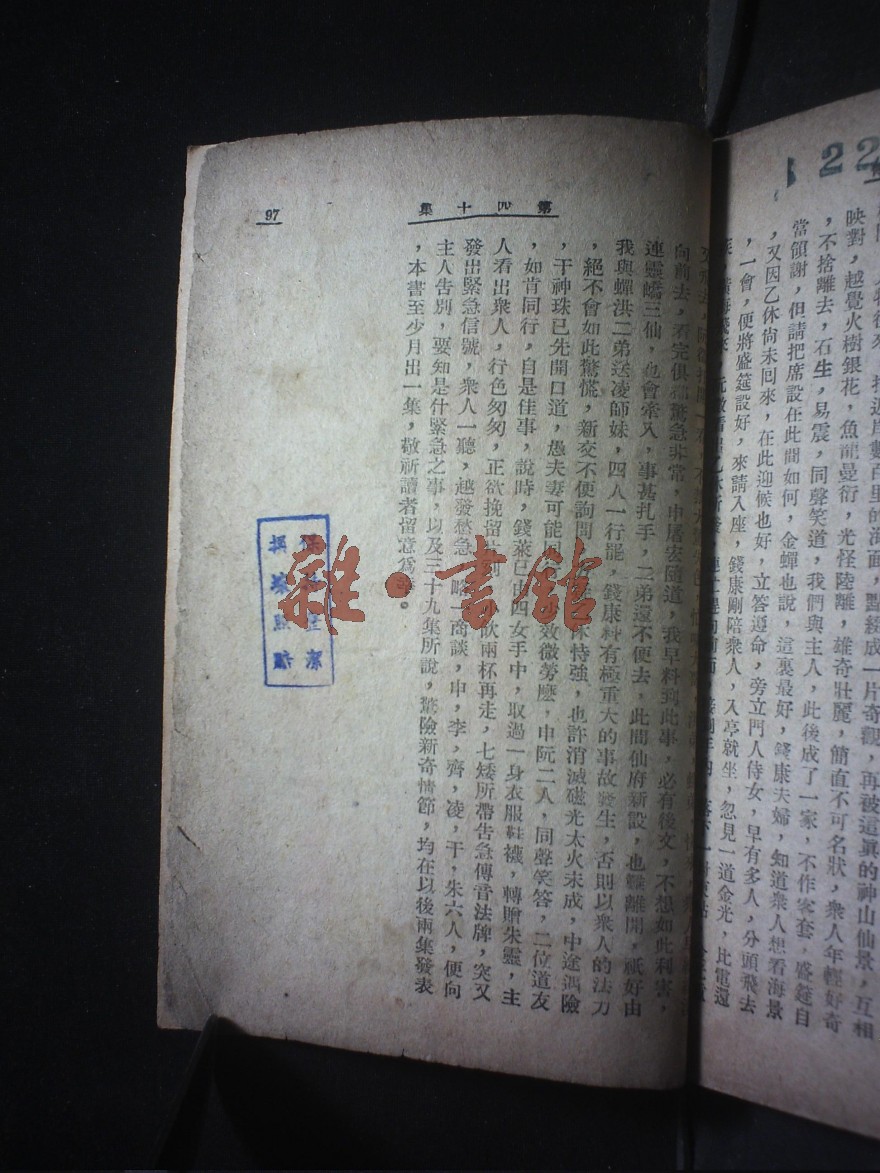 22
映對，越覺火樹銀花，魚龍曼衍，光怪陸離，雄奇壯麗，簡直不可名狀，衆人年輕好奇
，不捨離去，石生，易震，同聲笑道，我們與主人，此後成了一家，不作客套，盛筵自
當領謝，但請把席設在此間如何，金蟬也說，這裏最好，錢康夫婦，知道衆人想看海景
，又因乙休尚未囘來，在此迎候也好，立答遵命，旁立門人侍女，早有多人，分頭飛去
，一會，便將盛筵設好，來請入座，錢康剛陪衆人，入亭就坐，忽見一道金光，比電還
第四十集
97
向前去，看完俱都驚急非常，申屠宏隨道，我早料到此事，必有後文，不想如此利害，
連靈嶠三仙，也會牽入，事甚扎手，二弟還不便去，此間仙府新設，也難離開，祇好由
我與蟬洪二弟送凌師妹，四人一行罷，錢康料有極重大的事故發生，否則以衆人的法力
，絕不會如此驚慌，新交不便詢問，休恃強，也許消滅磁光太火未成，中途遇險
，干神珠已先開口道，愚夫妻可能同效微勞麽，申阮二人，同聲笑答，二位道友
，如肯同行，自是佳事，說時，錢萊已由四女手中，取過一身衣服鞋襪，轉贈朱靈，主
人看出衆人，行色匆匆，正欲挽留飲兩杯再走，七矮所帶告急傳音法牌，突又
發出緊急信號，衆人一聽，越發愁急，略一商談，申，李，齊，凌，干，朱六人，便向
主人告別，要知是什緊急之事，以及三十九集所說，驚險新奇情節，均在以後兩集發表
，本書至少月出一集，敬祈讀者留意爲
雜·書館